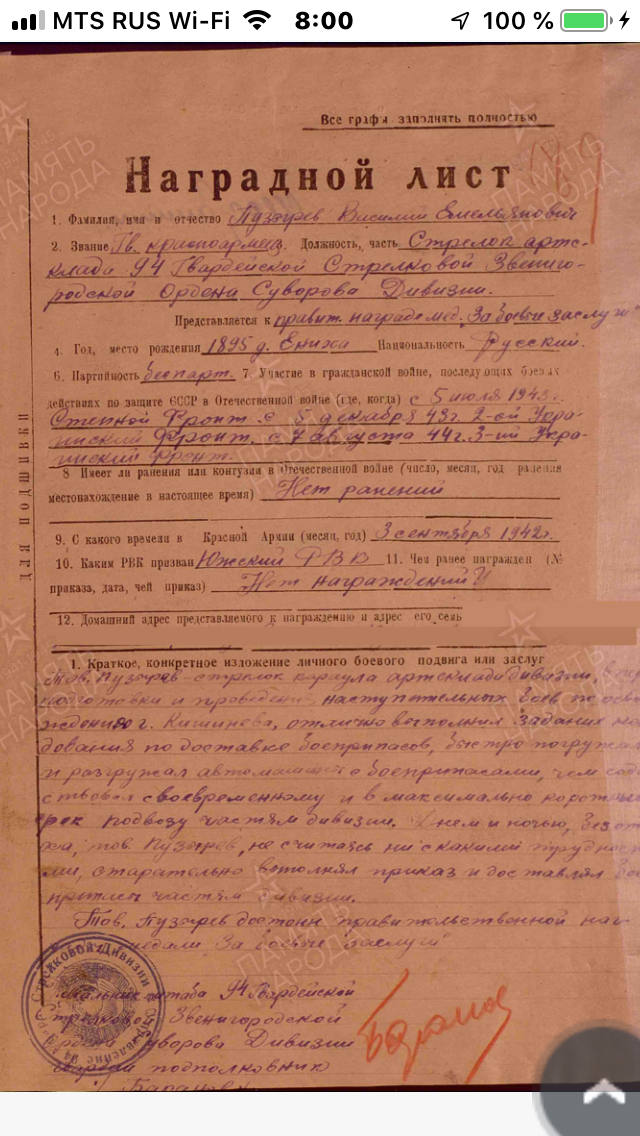 MTS RUS Wi-Fi 8:00 100 %
Все графы заполнять полностью
ПАМЯТЬ НАРОДА
Наградной лист
1. Фамилия, имя и отчество Пузырев Василий Емельянович
2. Звание Гв. красноармеец. Должность, часть Стрелок артс-
клада 94 Гвардейской Стрелковой Звениго-
родской Ордена Суворова Дивизии.
Представляется к правит. награде мед. "За боевые заслуги"
4. Год, место рождения 1895 г. Национальность Русский.
6. Партийность беспарт. 7 Участие в гражданской войне, последующих боевых
действиях по защите СССР в Отечественной войне (где, когда) с 5 июля 1943г.
Степной Фронт с 5 декабря 43г. 2-ой Укра-
инский Фронт. с 7 августа 44г. 3-ий Укра-
инский Фронт.
8 Имеет ли ранения или контузии в Отечественной войне (число, месяц, год ранения
местонахождение в настоящее время) Нет ранений
ДЛЯ ПОДШИВКИ
9. С какого времени в Красной Армии (месяц, год) 3 сентября 1942г.
10. Каким РВК призван Южский РВК 11. Чем ранее награжден (№
приказа, дата, чей приказ) Нет награждений
12. Домашний адрес представляемого к награждению и адрес его семь
1. Краткое, конкретное изложение личного боевого подвига или заслуг
Тов. Пузырев - стрелок караула артсклада дивизии, в
подготовки и проведения наступательных боев по осво
ждению г. Кишинева, отлично выполнил задание
дования по доставке боеприпасов, быстро погружал
и разгружал автомашины с боеприпасами, чем сод
ствовал своевременному и в максимально коротк
срок подвозу частям дивизии. Днем и ночью, без от
ха, тов. Пузырев, не считаясь ни с какими труднос
ми, старательно выполнял приказ и доставлял бое
припасы частям дивизии.
Тов. Пузырев достоин правительственной наг-
медали "За боевые заслуги"
Начальник штаба 94 Гвардейской
Стрелковой Звенигородской
Ордена Суворова Дивизии
Гвардии подполковник
Баранов